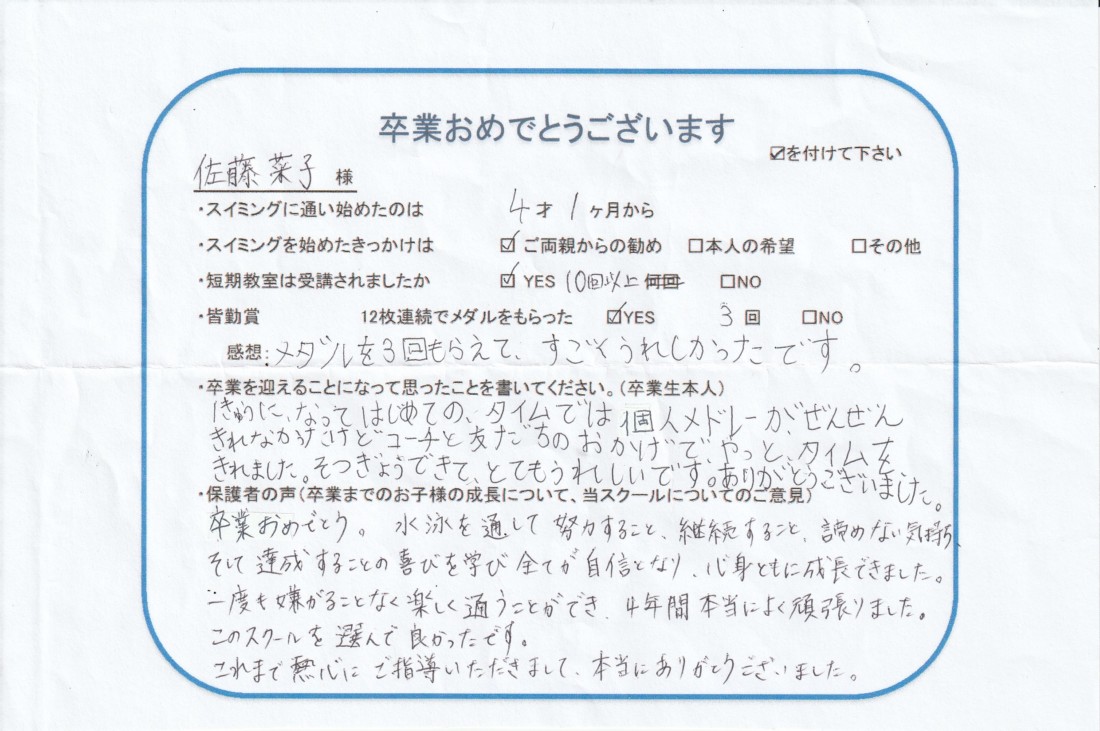 卒業おめでとうございます
☑を付けて下さい
佐藤菜子 様
・スイミングに通い始めたのは 4才1ヶ月から
・スイミングを始めたきっかけは ☑ご両親からの勧め □本人の希望 □その他
・短期教室は受講されましたか ☑YES 10回以上 何回 □NO
・皆勤賞 12枚連続でメダルをもらった ☑YES 3回 □NO
感想:メダルを3回もらえて、すごくうれしかったです。
・卒業を迎えることになって思ったことを書いてください。(卒業生本人)
1きゅうに、なってはじめての、タイムでは個人メドレーが、ぜんぜん
きれなかったけどコーチと友だちのおかげでやっと、タイムを
きれました。そつぎょうできて、とてもうれしいです。ありがとうございました。
・保護者の声(卒業までのお子様の成長について、当スクールについてのご意見)
卒業おめでとう。水泳を通して努力すること、継続すること、諦めない気持ち、
そして達成することの喜びを学び全てが自信となり、心身ともに成長できました。
一度も嫌がることなく楽しく通うことができ、4年間本当によく頑張りました。
このスクールを選んで良かったです。
これまで熱心にご指導いただきまして、本当にありがとうございました。